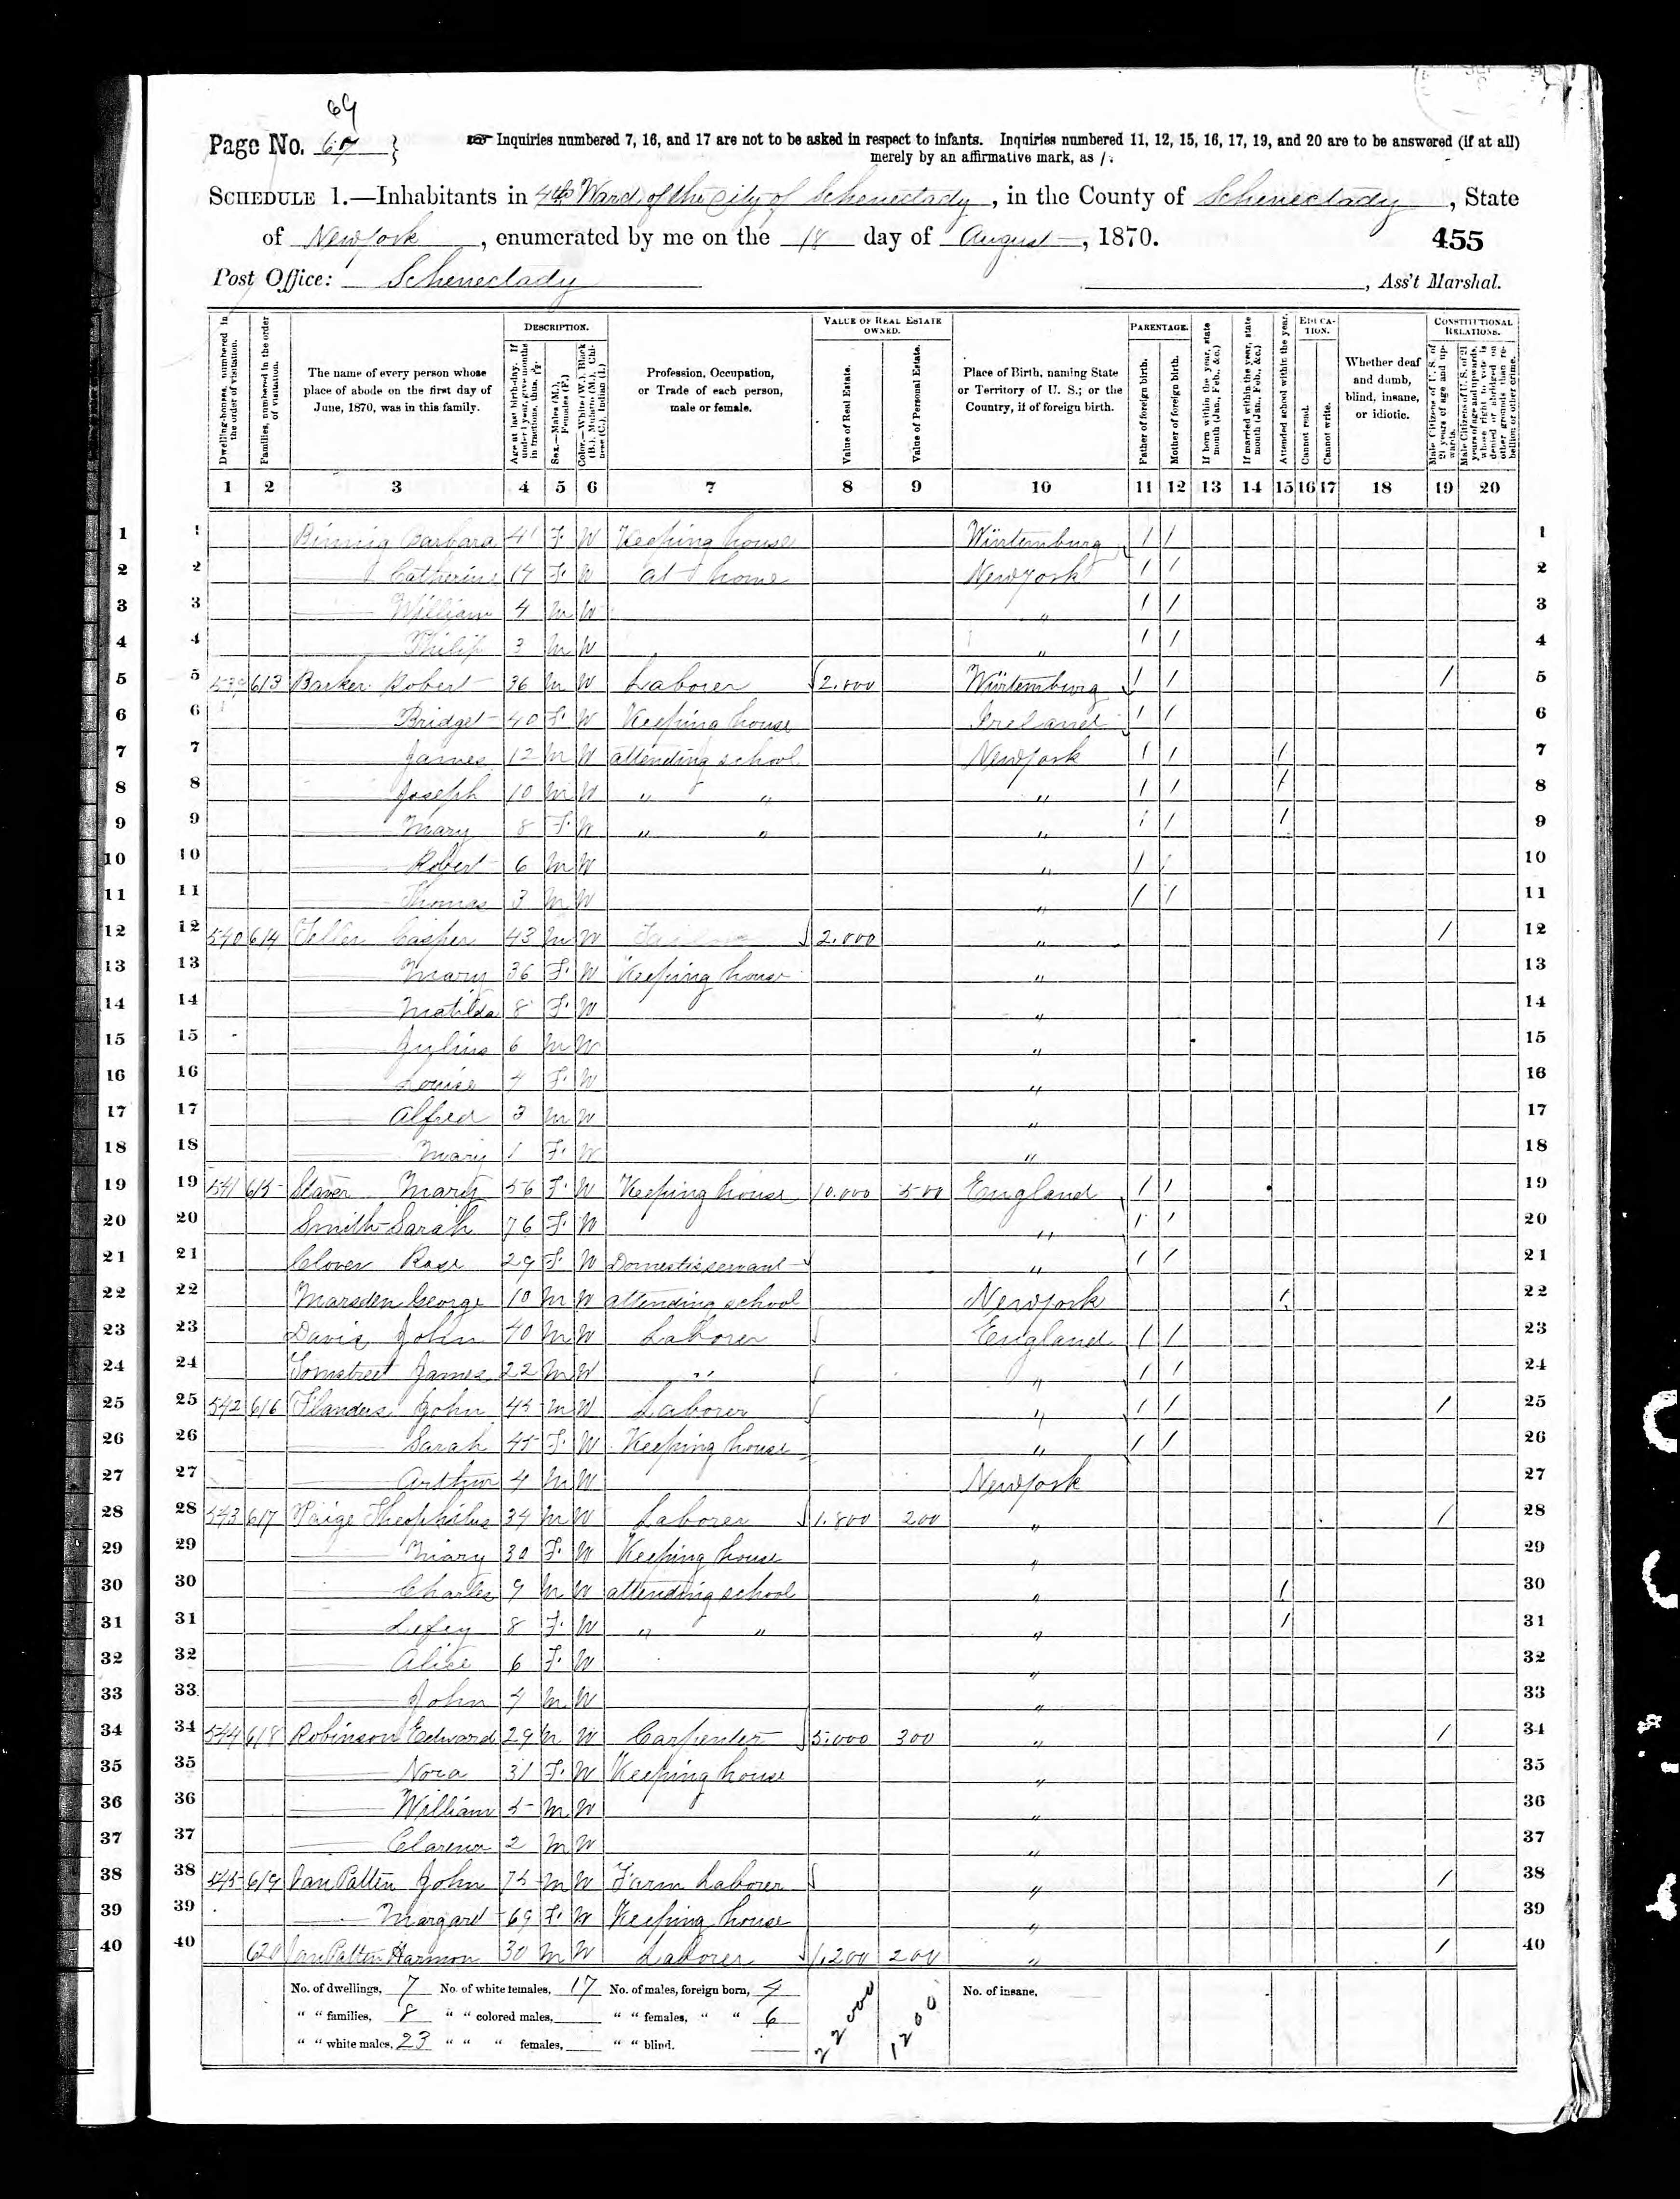 69
Page No. 67 }
☞ Inquiries numbered 7, 16, and 17 are not to be asked in respect to infants. Inquiries numbered 11, 12, 15, 16, 17, 19, and 20 are to be answered (if at all)
merely by an affirmative mark, as /.
SCHEDULE 1.—Inhabitants in 4th Ward of the City of Schenectady, in the County of Schenectady, State
of New York, enumerated by me on the 18 day of August, 1870.
455
Post Office: Schenectady
, Ass't Marshal.
Dwelling-houses, numbered in the order of visitation.
Families, numbered in the order of visitation.
The name of every person whose place of abode on the first day of June, 1870, was in this family.
DESCRIPTION.
Sex.—Males (M.), Females (F.)
Profession, Occupation, or Trade of each person, male or female.
VALUE OF REAL ESTATE OWNED.
Value of Real Estate.
Value of Personal Estate.
Place of Birth, naming State or Territory of U. S.; or the Country, if of foreign birth.
PARENTAGE.
Father of foreign birth.
Mother of foreign birth.
If born within the year, state month (Jan., Feb., &c.)
If married within the year, state month (Jan., Feb., &c.)
Attended school within the year.
EDUCATION.
Cannot read.
Cannot write.
Whether deaf and dumb, blind, insane, or idiotic.
CONSTITUTIONAL RELATIONS.
1 2 3 4 5 6 7 8 9 10 11 12 13 14 15 16 17 18 19 20
1 Binnig Barbara 41 F. W Keeping house Würtemburg / / 1
2 — Catherine 14 F. W at home New York / / 2
3 — William 4 M W " / / 3
4 — Philip 3 M W " / / 4
5 539 613 Barker Robert 36 M W Laborer 2.800 Würtemburg / / / 5
6 — Bridget 40 F. W Keeping house Ireland / / 6
7 — James 12 M W attending school New York / / / 7
8 — Joseph 10 M W " " " / / / 8
9 — Mary 8 F. W " " " / / / 9
10 — Robert 6 M W " / / 10
11 — Thomas 3 M W " / / 11
12 540 614 Teller Casper 43 M W 2.000 " / 12
13 — Mary 36 F. W Keeping house " 13
14 — Matilda 8 F. W " 14
15 — Julius 6 M W " 15
16 — Louise 4 F. W " 16
17 — Alfred 3 M W " 17
18 — Mary 1 F. W " 18
19 541 615 Mary 56 F. W Keeping house 10.000 500 England / / 19
20 Smith Sarah 76 F. W " / / 20
21 Clover Rose 29 F. W Domestic servant " / / 21
22 Marsden George 10 M W attending school New York / 22
23 Davis John 40 M W Laborer England / / 23
24 James 22 M W " " / / 24
25 542 616 Flanders John 45 M W Laborer " / / / 25
26 — Sarah 45 F. W Keeping house " / / 26
27 — Arthur 4 M W New York 27
28 543 617 Paige Theophilus 34 M W Laborer 1.800 200 " / 28
29 — Mary 30 F. W Keeping house " 29
30 — Charles 9 M W attending school " / 30
31 — 8 F. W " " " / 31
32 — Alice 6 F. W " 32
33 — John 4 M W " 33
34 544 618 Robinson Edward 29 M W Carpenter 5.000 300 " / 34
35 — Nora 31 F. W Keeping house " 35
36 — William 5 M W " 36
37 — Clarence 2 M W " 37
38 545 619 Van Patten John 75 M W Farm Laborer " / 38
39 — Margaret 69 F. W Keeping house " 39
40 620 Van Patten Harmon 30 M W Laborer 1.200 200 " / 40
No. of dwellings, 7 No. of white females, 17 No. of males, foreign born, 4 22000 1200 No. of insane,
" " families, 8 " " colored males, " " females, " " 6
" " white males, 23 " " " females, " " blind.